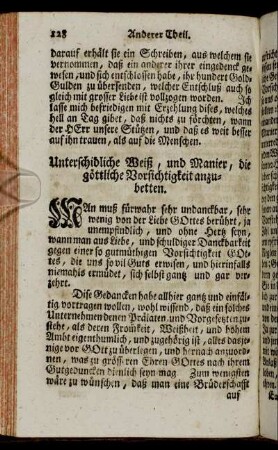 128 Anderer Theil.
darauf erhält sie ein Schreiben, aus welchem sie
vernommen, daß ein anderer ihrer eingedenck ge-
wesen, und sich entschlossen habe, ihr hundert Gold-
Gulden zu übersenden, welcher Entschluß auch so
gleich mit grosser Liebe ist vollzogen worden. Ich
lasse mich befridigen mit Erzehlung dises, welches
hell an Tag gibet, daß nichts zu förchten, wann
der HErr unsere Stützen, und daß es weit besser
auf ihn trauen, als auf die Menschen.
Unterschidliche Weiß, und Manier, die
göttliche Vorsichtigkeit anzu-
betten.
MAn muß fürwahr sehr undanckbar, sehr
wenig von der Liebe GOttes berührt, ja
unempfindlich, und ohne Hertz seyn,
wann man aus Liebe, und schuldiger Danckbarkeit
gegen einer so gutmüthigen Vorsichtigkeit GOt-
tes, die uns so vil Guts erwisen, und hierinfalls
niemahls ermüdet, sich selbst gantz und gar ver-
zehrt.
Dise Gedancken habe allhier gantz und einfäl-
tig vortragen wollen, wohl wissend, daß ein solches
Unternehmen denen Prälaten und Vorgesetzten zu-
stehe, als deren Fromkeit, Weißheit, und hohem
Ambt eigenthumlich, und zugehörig ist, alles dasje-
nige vor GOtt zu überlegen, und hernach anzuord-
nen, was zu grösseren Ehren GOttes nach ihrem
Gutgeduncken dienlich seyn mag Zum wenigsten
wäre zu wünschen, daß man eine Brüderschafft
auf